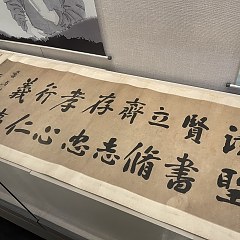 讀聖
賢書
立脩
齊志
存忠
孝心
行仁
義